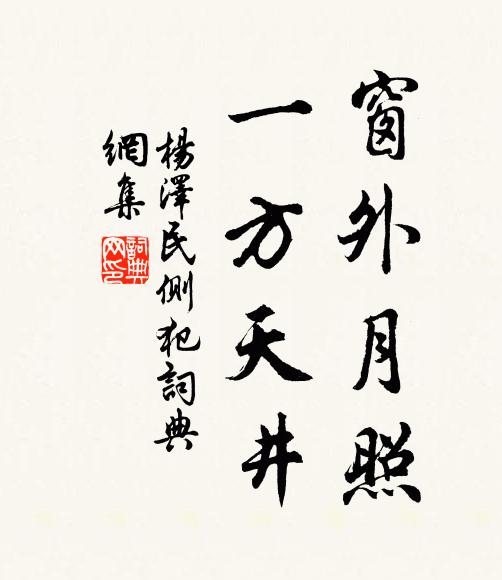 窗外月照
一方天井
楊澤民側犯詞典
網集
詞典
网印